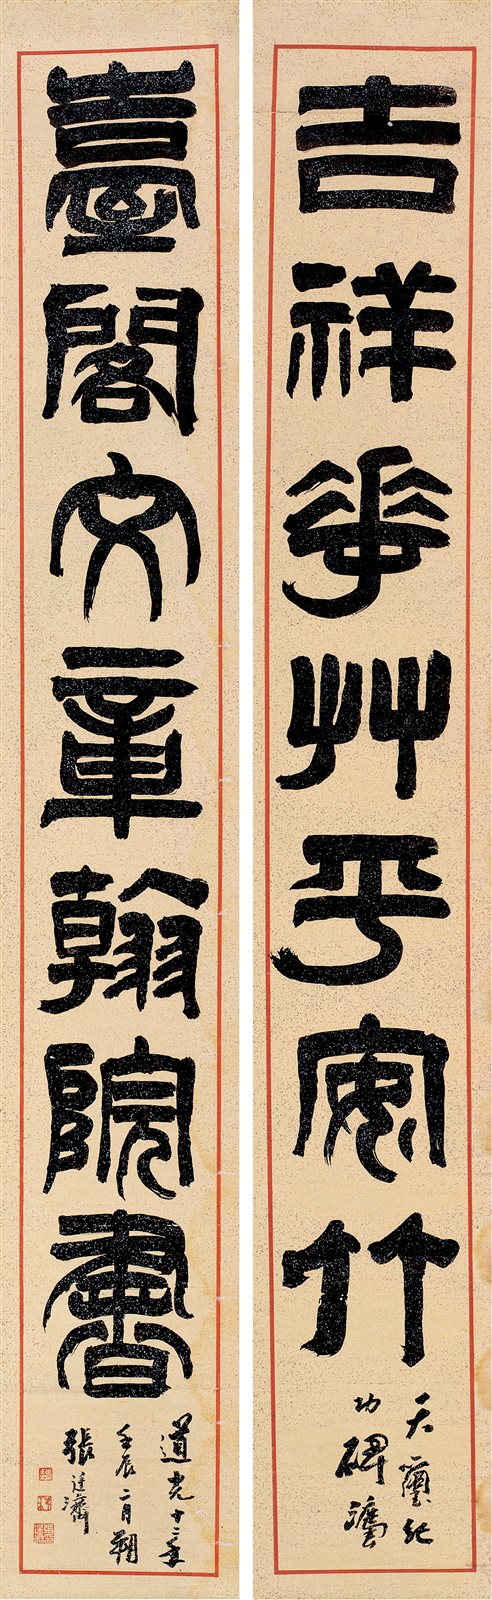 吉祥華艸平安竹
天璽紀
功碑灋
臺閣文章翰院書
道光十二年
壬辰二月朔
張廷濟